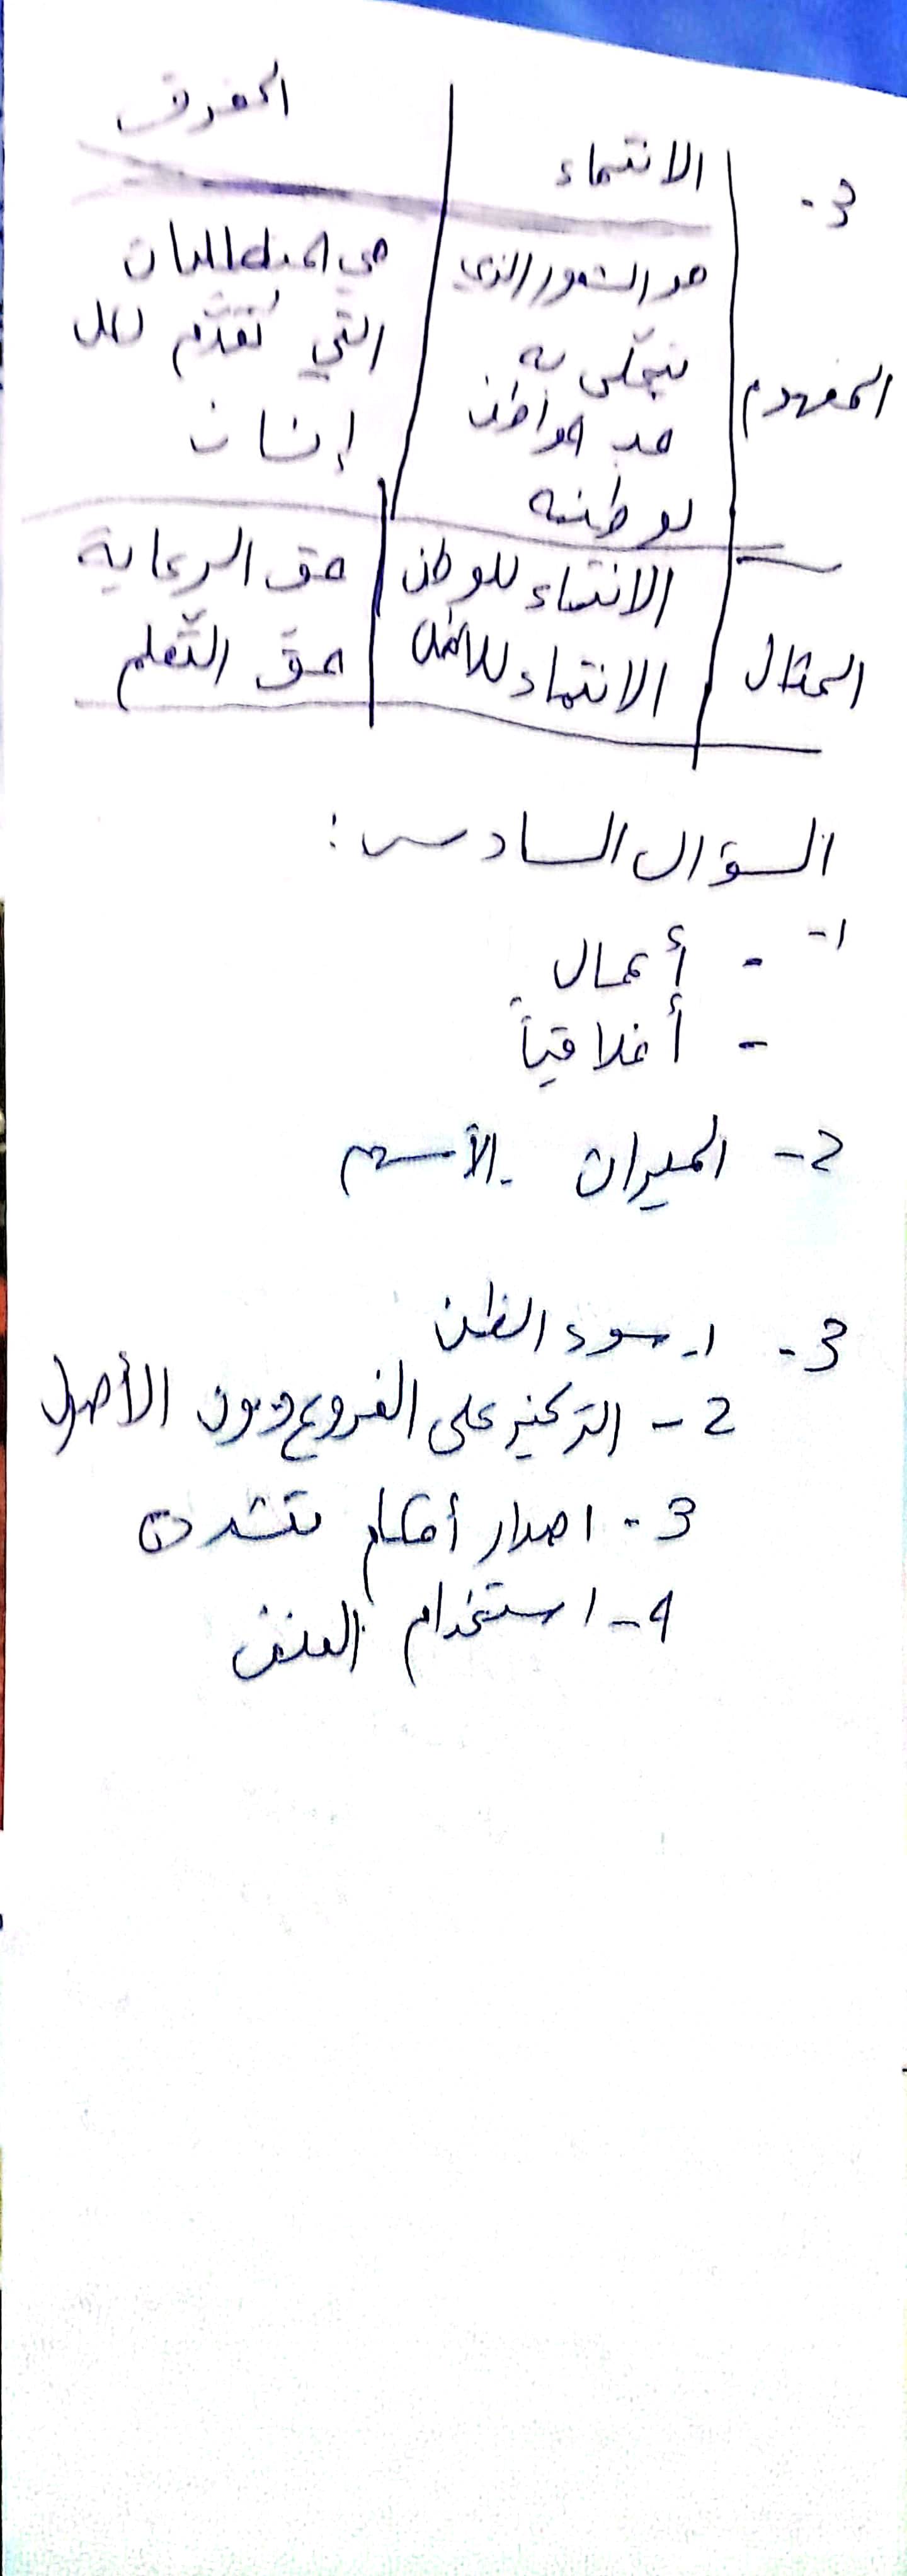 3- الانتماء الحقوق
المفهوم هو الشعور الذي هي المطالبات
يتجلى به التي تُقدّم لكل
حب المواطن إنسان
لوطنه
المثال الانتماء للوطن حق الرعاية
الانتماء للأهل حق التّعلم
السؤال السادس:
1- - أعمال
- أخلاقياً
2- الميراث - الأسهم
3- 1- سوء الظن
2- التركيز على الفروع دون الأصول
3- اصدار أحكام متشددة
4- استخدام العنف